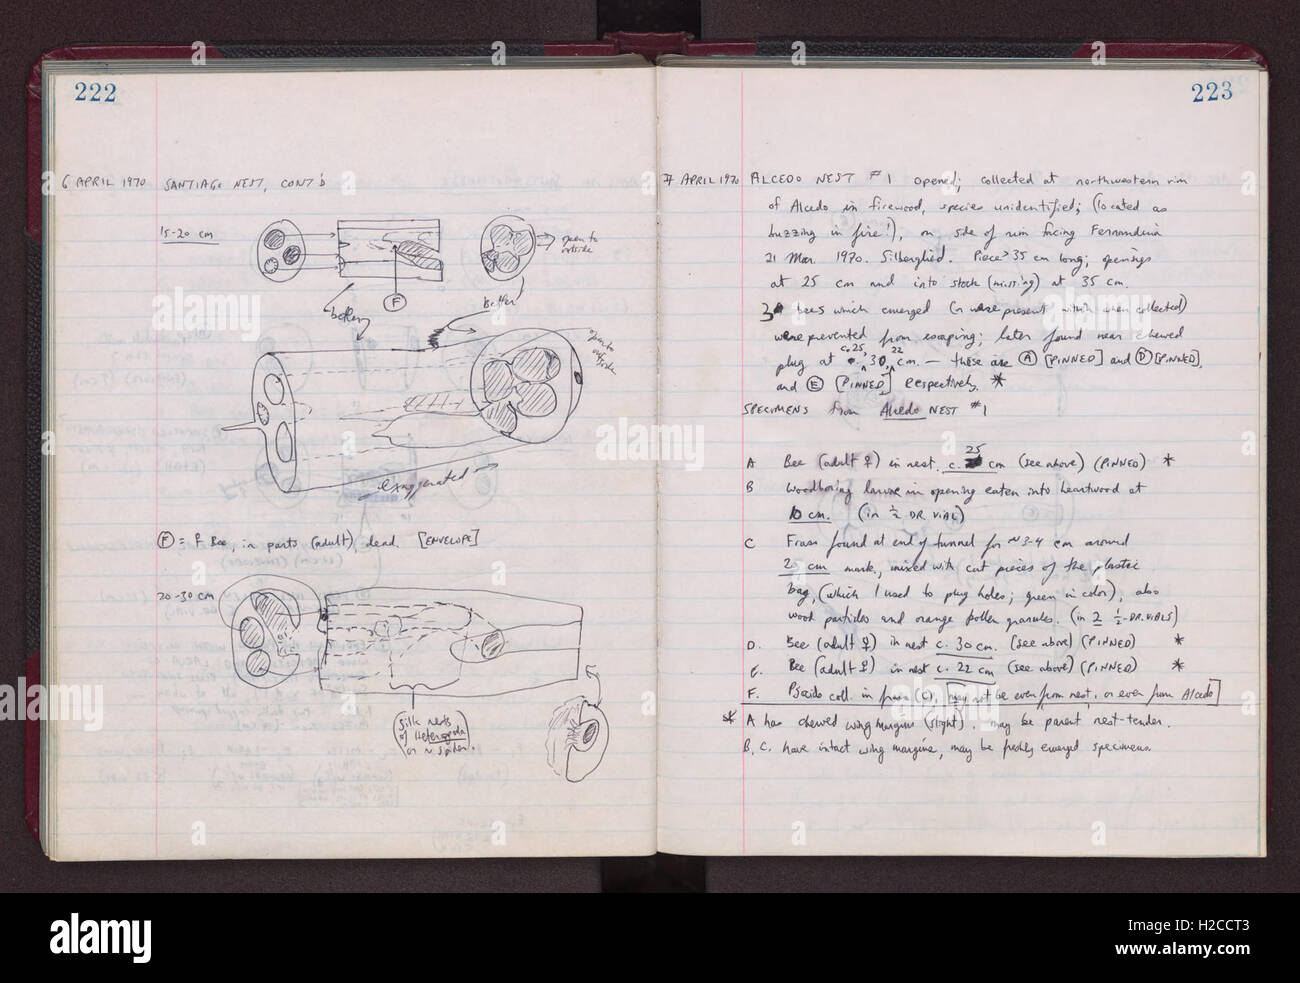 222
6 APRIL 1970 SANTIAGO NEST, CONT'D
15-20 cm
open to outside
F
better
better
open to outside
exaggerated
(F) = ♀ Bee, in parts (adult), dead. [ENVELOPE]
20-30 cm
(Silk nests
of Heteropoda
or spider.)
223
7 APRIL 1970 ALCEDO NEST #1 opened; collected at northwestern rim
of Alcedo in firewood, species unidentified; (located as
buzzing in fire!), on side of rim facing Fernandina
21 Mar. 1970. Silberglied. Piece > 35 cm long; openings
at 25 cm and into stock (missing) at 35 cm.
3 bees which emerged (or were present within when collected)
were prevented from escaping; later found near chewed
plug at c. 25, 30, 22 cm. — these are (A) [PINNED] and (D) [PINNED],
and (E) [PINNED] respectively. *
SPECIMENS from Alcedo NEST #1
A Bee (adult ♀) in nest c. 25 cm (see above) (PINNED) *
B Woodboring larvae in opening eaten into heartwood at
10 cm. (in ½ DR VIAL)
C Frass found at end of tunnel for ~3-4 cm around
25 cm mark, mixed with cut pieces of the plastic
bag, (which I used to plug holes; green in color), also
wood particles and orange pollen granules. (in 2 ½-DR. VIALS)
D. Bee (adult ♀) in nest c. 30 cm. (see above) (PINNED) *
E. Bee (adult ♀) in nest c. 22 cm (see above) (PINNED) *
F. Pseudo coll. in frass (C), [may not be even from nest, or even from Alcedo]
* A has chewed wing margins (slight). may be parent nest-tender.
B, C. have intact wing margins, may be freshly emerged specimens.
alamy
alamy
Image ID: H2CCT3
www.alamy.com